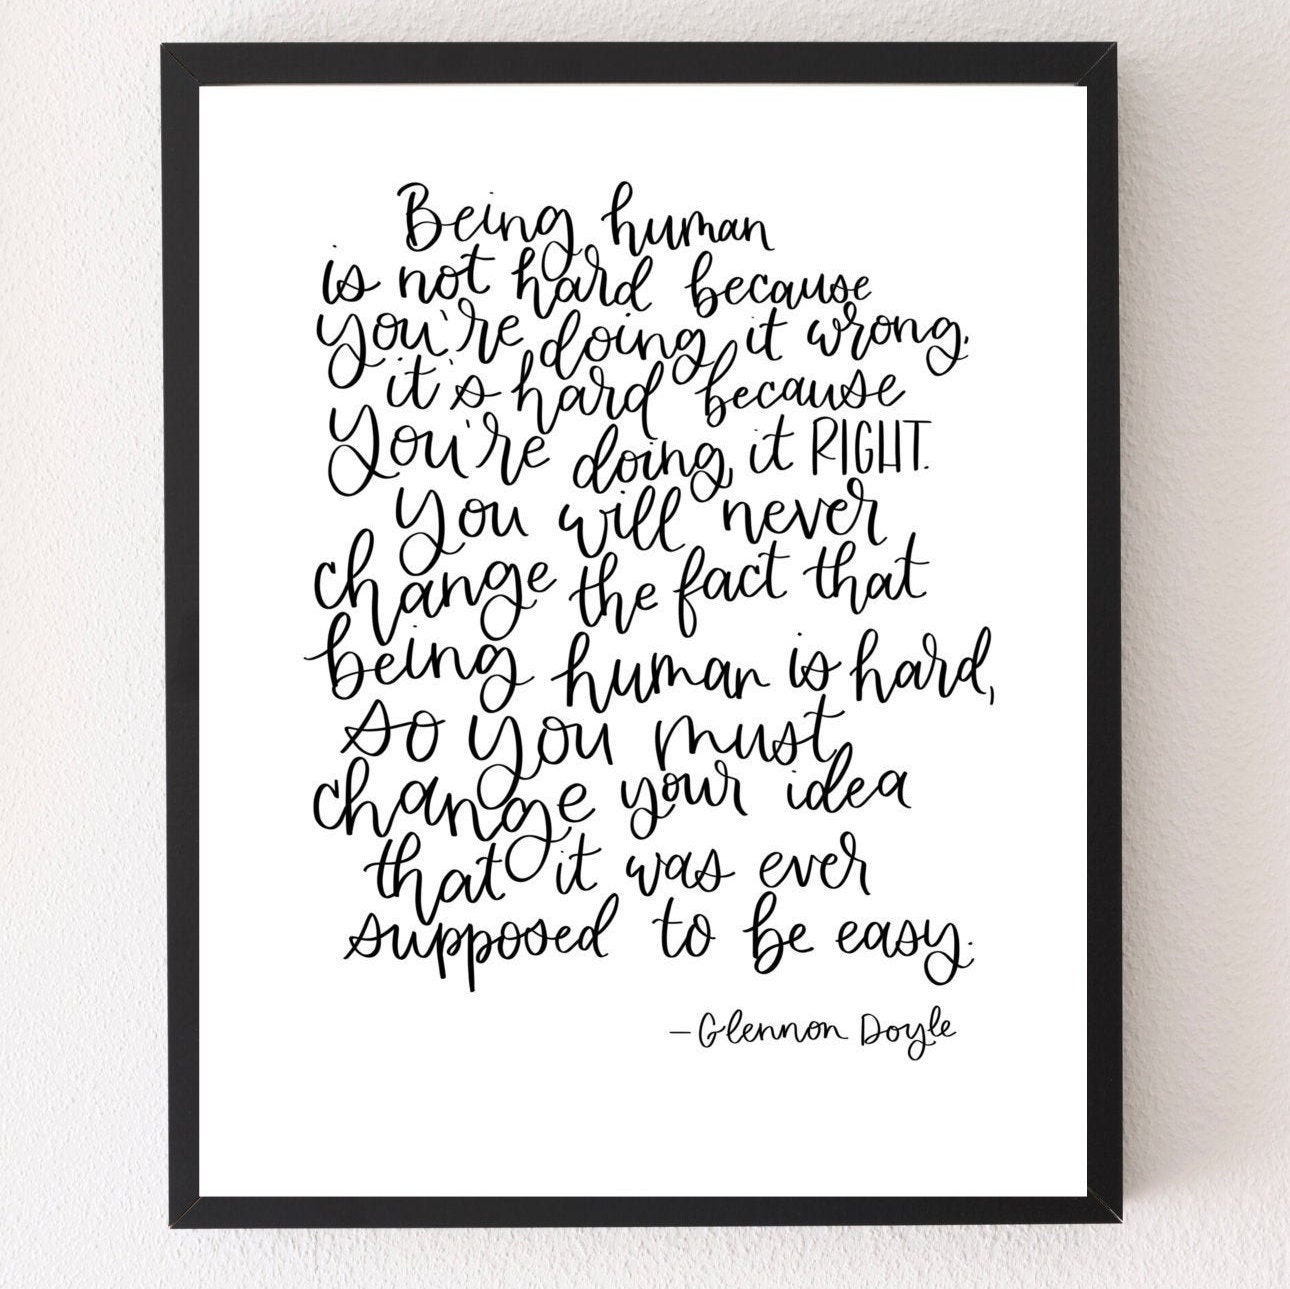 Being human
is not hard because
you're doing it wrong.
it's hard because
you're doing it RIGHT.
you will never
change the fact that
being human is hard,
so you must
change your idea
that it was ever
supposed to be easy.
-Glennon Doyle